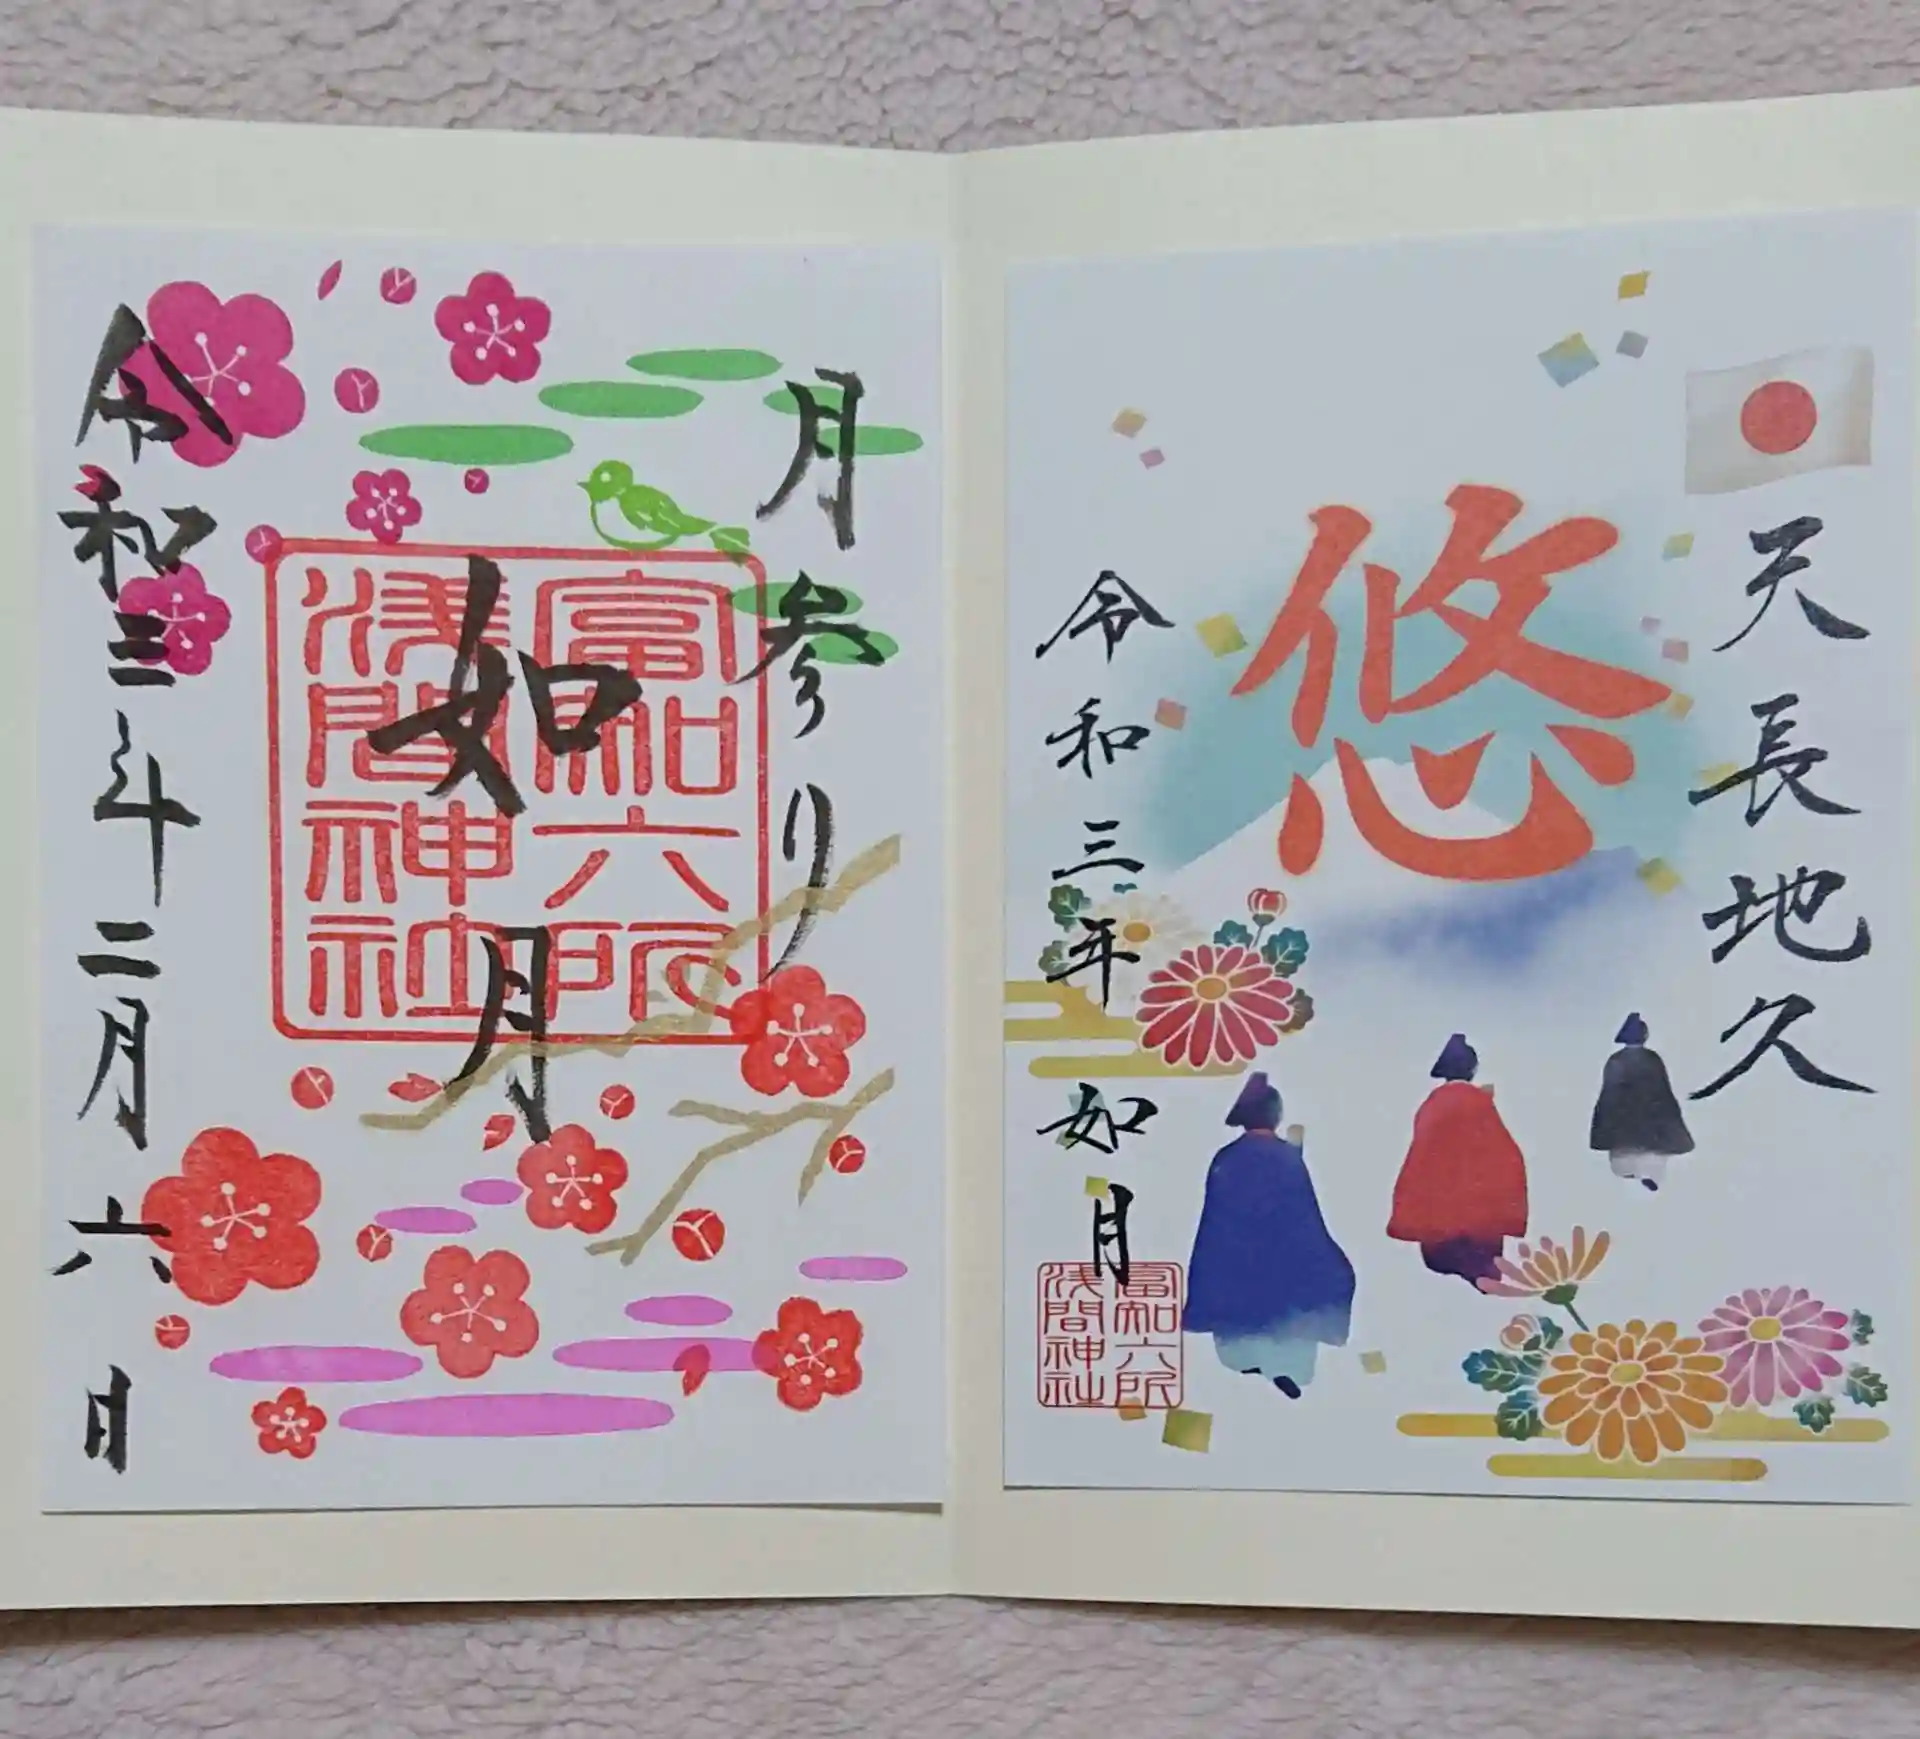 月参り
如月
富知六所
浅間神社
令和三年二月六日
天長地久
悠
令和三年如月
富知六所
浅間神社